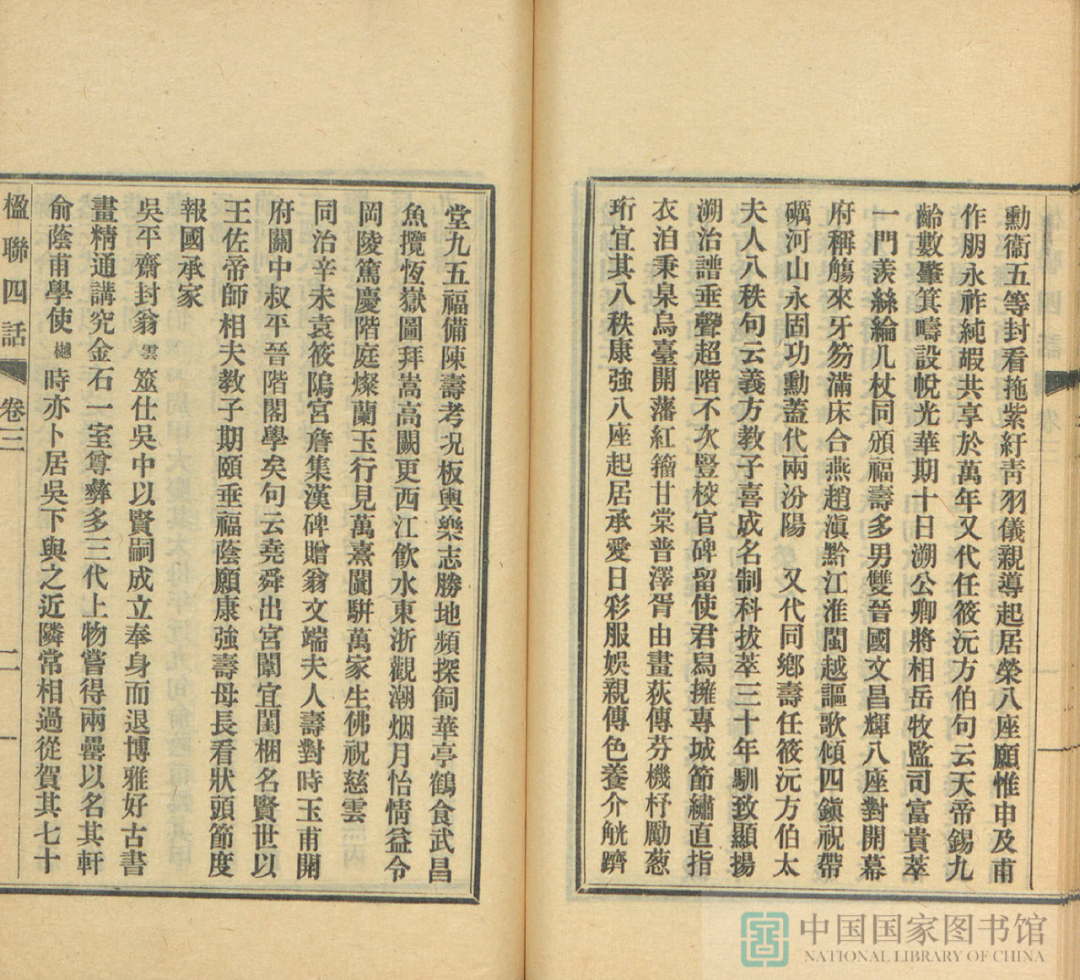 勳衞五等封看拖紫紆靑羽儀親導起居榮八座願惟申及甫
作朋永祚純嘏共享於萬年又代任筱沅方伯句云天帝錫九
齡數肇箕疇設帨光華期十日溯公卿將相岳牧監司富貴萃
一門羨絲綸几杖同頒福壽多男雙晉國文昌輝八座對開幕
府稱觴來牙笏滿床合燕趙滇黔江淮閩越謳歌傾四鎭祝帶
礪河山永固功勳蓋代兩汾陽　又代同鄉壽任筱沅方伯太
夫人八秩句云義方教子喜成名制科拔萃三十年馴致顯揚
溯治譜垂聲超階不次豎校官碑留使君舃擁專城節繡直指
衣洎秉臬烏臺開藩紅籀甘棠普澤胥由畫荻傳芬機杼勵葱
珩宜其八秩康強八座起居承愛日彩服娛親傳色養介觥躋
堂九五福備陳壽考况板輿樂志勝地頻探飼華亭鶴食武昌
魚攬恆嶽圖拜嵩高闕更西江飮水東浙觀潮烟月怡情益令
岡陵篤慶階庭燦蘭玉行見萬熹闐駢萬家生佛祝慈雲
同治辛未袁筱隖宮詹集漢碑贈翁文端夫人壽對時玉甫開
府關中叔平晉階閣學矣句云堯舜出宮闈宜閨梱名賢世以
王佐帝師相夫教子期頤垂福蔭願康強壽母長看狀頭節度
報國承家
吳平齋封翁雲筮仕吳中以賢嗣成立奉身而退博雅好古書
畫精通講究金石一室尊彝多三代上物嘗得兩罍以名其軒
俞蔭甫學使樾時亦卜居吳下與之近隣常相過從賀其七十
楹聯四話　卷三　二一
中国国家图书馆
NATIONAL LIBRARY OF CHINA